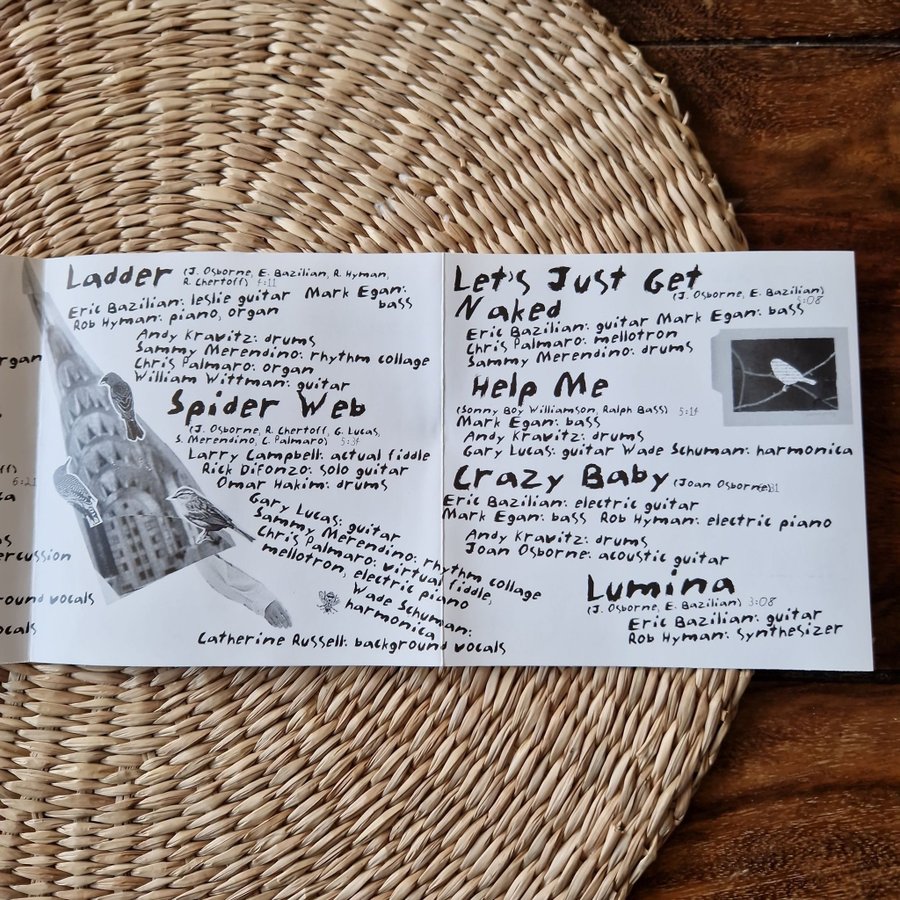 organ
6:21
ercussion
round vocals
ocals
Ladder (J. Osborne, E. Bazilian, R. Hyman,
R. Chertoff) 4:11
Eric Bazilian: leslie guitar Mark Egan:
bass
Rob Hyman: piano, organ
Andy Kravitz: drums
Sammy Merendino: rhythm collage
Chris Palmaro: organ
William Wittman: guitar
Spider Web
(J. Osborne, R. Chertoff, G. Lucas,
S. Merendino, C. Palmaro) 5:34
Larry Campbell: actual fiddle
Rick DiFonzo: solo guitar
Omar Hakim: drums
Gary Lucas: guitar
Sammy Merendino: rhythm collage
Chris Palmaro: virtual fiddle,
mellotron, electric piano
Wade Schuman:
harmonica
Catherine Russell: background vocals
Let's Just Get
Naked (J. Osborne, E. Bazilian)
5:08
Eric Bazilian: guitar Mark Egan: bass
Chris Palmaro: mellotron
Sammy Merendino: drums
Help Me
(Sonny Boy Williamson, Ralph Bass) 5:14
Mark Egan: bass
Andy Kravitz: drums
Gary Lucas: guitar Wade Schuman: harmonica
Crazy Baby (Joan Osborne)
Eric Bazilian: electric guitar
Mark Egan: bass Rob Hyman: electric piano
Andy Kravitz: drums
Joan Osborne: acoustic guitar
Lumina
(J. Osborne, E. Bazilian) 3:08
Eric Bazilian: guitar
Rob Hyman: synthesizer